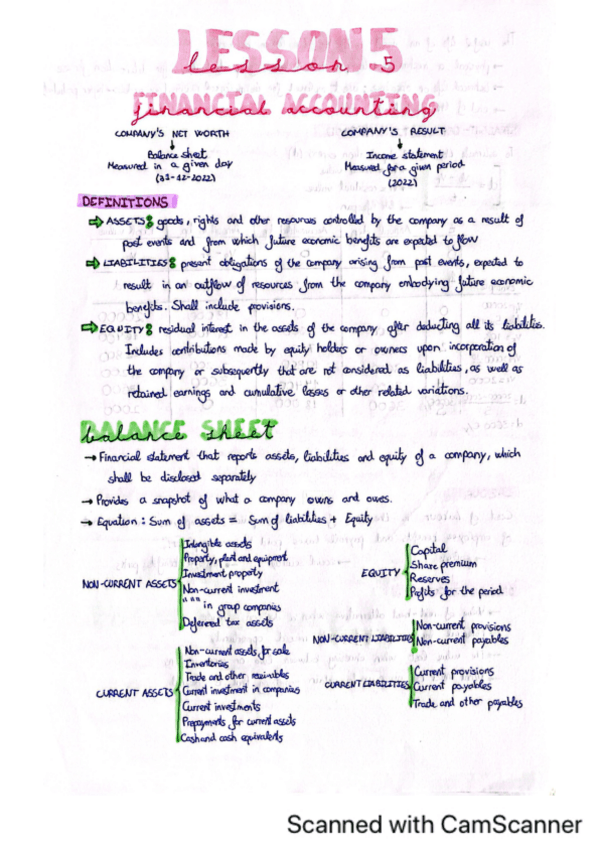 LESSON 5
lesson 5
FINANCIAL ACCOUNTING
COMPANY'S NET WORTH
Balance sheet
Measured in a given day
(31-12-2022)
COMPANY'S RESULT
Income statement
Measured for a given period
(2022)
DEFINITIONS
⇒ ASSETS: goods, rights and other resources controlled by the company as a result of
past events and from which future economic benefits are expected to flow
⇒ LIABILITIES: present obligations of the company arising from past events, expected to
result in an outflow of resources from the company embodying future economic
benefits. Shall include provisions.
⇒ EQUITY: residual interest in the assets of the company after deducting all its liabilities.
Includes contributions made by equity holders or owners upon incorporation of
the company or subsequently that are not considered as liabilities, as well as
retained earnings and cumulative losses or other related variations.
balance sheet
→ Financial statement that reports assets, liabilities and equity of a company, which
shall be disclosed separately
→ Provides a snapshot of what a company owns and owes.
→ Equation: Sum of assets = Sum of liabilities + Equity
NON-CURRENT ASSETS
Intangible assets
Property, plant and equipment
Investment property
Non-current investment
" " " in group companies
Deferred tax assets
CURRENT ASSETS
Non-current assets for sale
Inventories
Trade and other receivables
Current investment in companies
Current investments
Prepayments for current assets
Cash and cash equivalents
EQUITY
Capital
Share premium
Reserves
Profits for the period
NON-CURRENT LIABILITIES
Non-current provisions
Non-current payables
CURRENT LIABILITIES
Current provisions
Current payables
Trade and other payables
Scanned with CamScanner